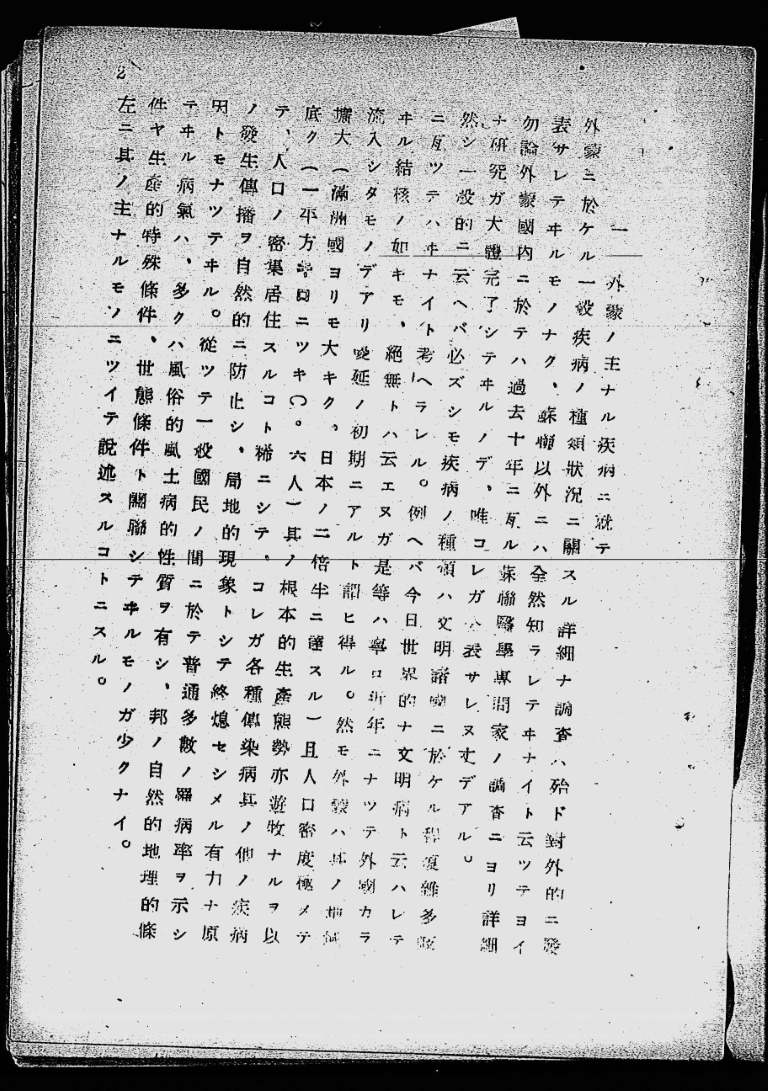 2
一 外蒙ノ主ナル疾病ニ就テ
外蒙ニ於ケル一般疾病ノ種類狀況ニ關スル詳細ナ調査ハ殆ド對外的ニ發
表サレテヰルモノナク、蘇聯以外ニハ全然知ラレテヰナイト云ツテヨイ
勿論外蒙國內ニ於テハ過去十年ニ亙ル蘇聯醫學專門家ノ調査ニヨリ詳細
ナ研究ガ大體完了シテヰルノデ、唯コレガ公表サレヌ丈デアル。
然シ一般的ニ云ヘバ必ズシモ疾病ノ種類ハ文明諸國ニ於ケル程複雜多
ニ亙ツテハヰナイト考ヘラレル。例ヘバ今日世界的ナ文明病ト云ハレテ
ヰル結核ノ如キモ、絕無トハ云エヌガ是等ハ寧ロ近年ニナツテ外國カラ
流入シタモノデアリ蔓延ノ初期ニアルト謂ヒ得ル。然モ外蒙ハ其ノ地域
擴大(滿洲國ヨリモ大キク、日本ノ二倍半ニ達スル)且人口密度極メテ
底ク(一平方キロニツキ〇。六人)其ノ根本的生產態勢亦遊牧ナルヲ以
テ、人口ノ密集居住スルコト稀ニシテ、コレガ各種傳染病其ノ他ノ疾病
ノ發生傳播ヲ自然的ニ防止シ、局地的現象トシテ終熄セシメル有力ナ原
因トモナツテヰル。從ツテ一般國民ノ間ニ於テ普通多數ノ羅病率ヲ示シ
テヰル病氣ハ、多クハ風俗的風土病的性質ヲ有シ、邦ノ自然的地理的條
件ヤ生產的特殊條件、世態條件ト關聯シテヰルモノガ少クナイ。
左ニ其ノ主ナルモノニツイテ說述スルコトニスル。